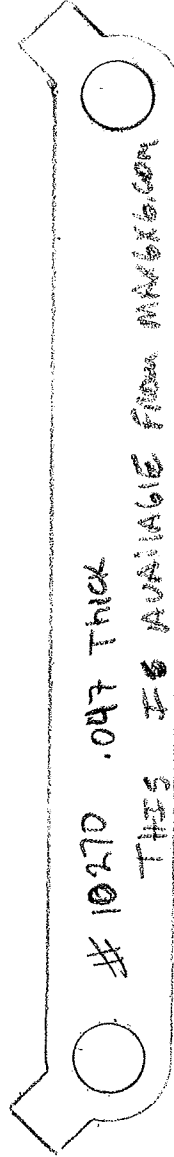 # 10270 .047 Thick
THIS IS AVAILABLE From MAX6X6.com